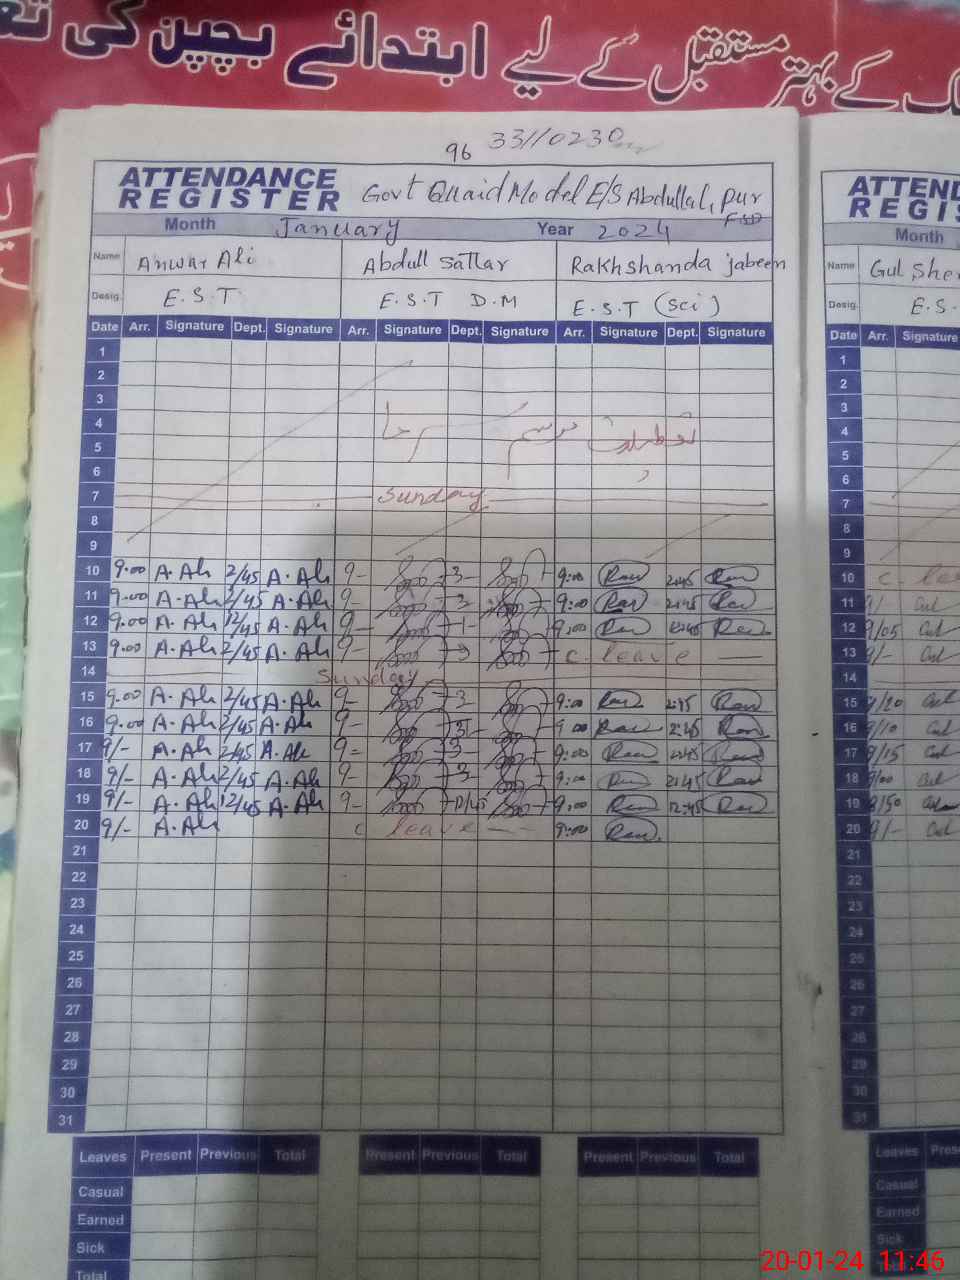 کے بہتر مستقبل کے لیے ابتدائے بچپن کی
96 33110230
ATTENDANCE REGISTER Govt Quaid Model E/S Abdullah pur FSD
Month January Year 2024
Name Anwar Ali Abdull Sattar Rakhshanda jabeen
Desig. E.S.T E.S.T D.M E.S.T (Sci)
Date Arr. Signature Dept. Signature Arr. Signature Dept. Signature Arr. Signature Dept. Signature
1
2
3
4
5
تعطیلات موسم سرما
6
7 Sunday
8
9
10 9.00 A.Ali 2/45 A.Ali 9- 3- 9:00 2:45
11 9.00 A.Ali 2/45 A.Ali 9- 3- 9:00 2:45
12 9.00 A.Ali 12/45 A.Ali 9- 1- 9:00 12:45
13 9.00 A.Ali 2/45 A.Ali 9- 3 C. leave
14 Sunday
15 9.00 A.Ali 2/45 A.Ali 9- 3 9:00 2:45
16 9.00 A.Ali 2/45 A.Ali 9- 3- 9:00 2:45
17 9/- A.Ali 2/45 A.Ali 9- 3- 9:00 2:45
18 9/- A.Ali 2/45 A.Ali 9- 3 9:00 2:45
19 9/- A.Ali 12/45 A.Ali 9- 9:00 12:45
20 9/- A.Ali C leave 9:00
21
22
23
24
25
26
27
28
29
30
31
Leaves Present Previous Total Present Previous Total Present Previous Total
Casual
Earned
Sick
Total
ATTEND
REGIS
Month
Name Gul Sher
Desig. E.S.
Date Arr. Signature
1
2
3
4
5
6
7
8
9
10 C. lea
11 9/-
12 9/05
13 9/-
14
15 9/20
16 9/10
17 9/15
18 9/00
19 8/50
20 9/-
21
22
23
24
25
26
27
28
29
30
31
Leaves Prese
Casual
Earned
Sick
20-01-24 11:46